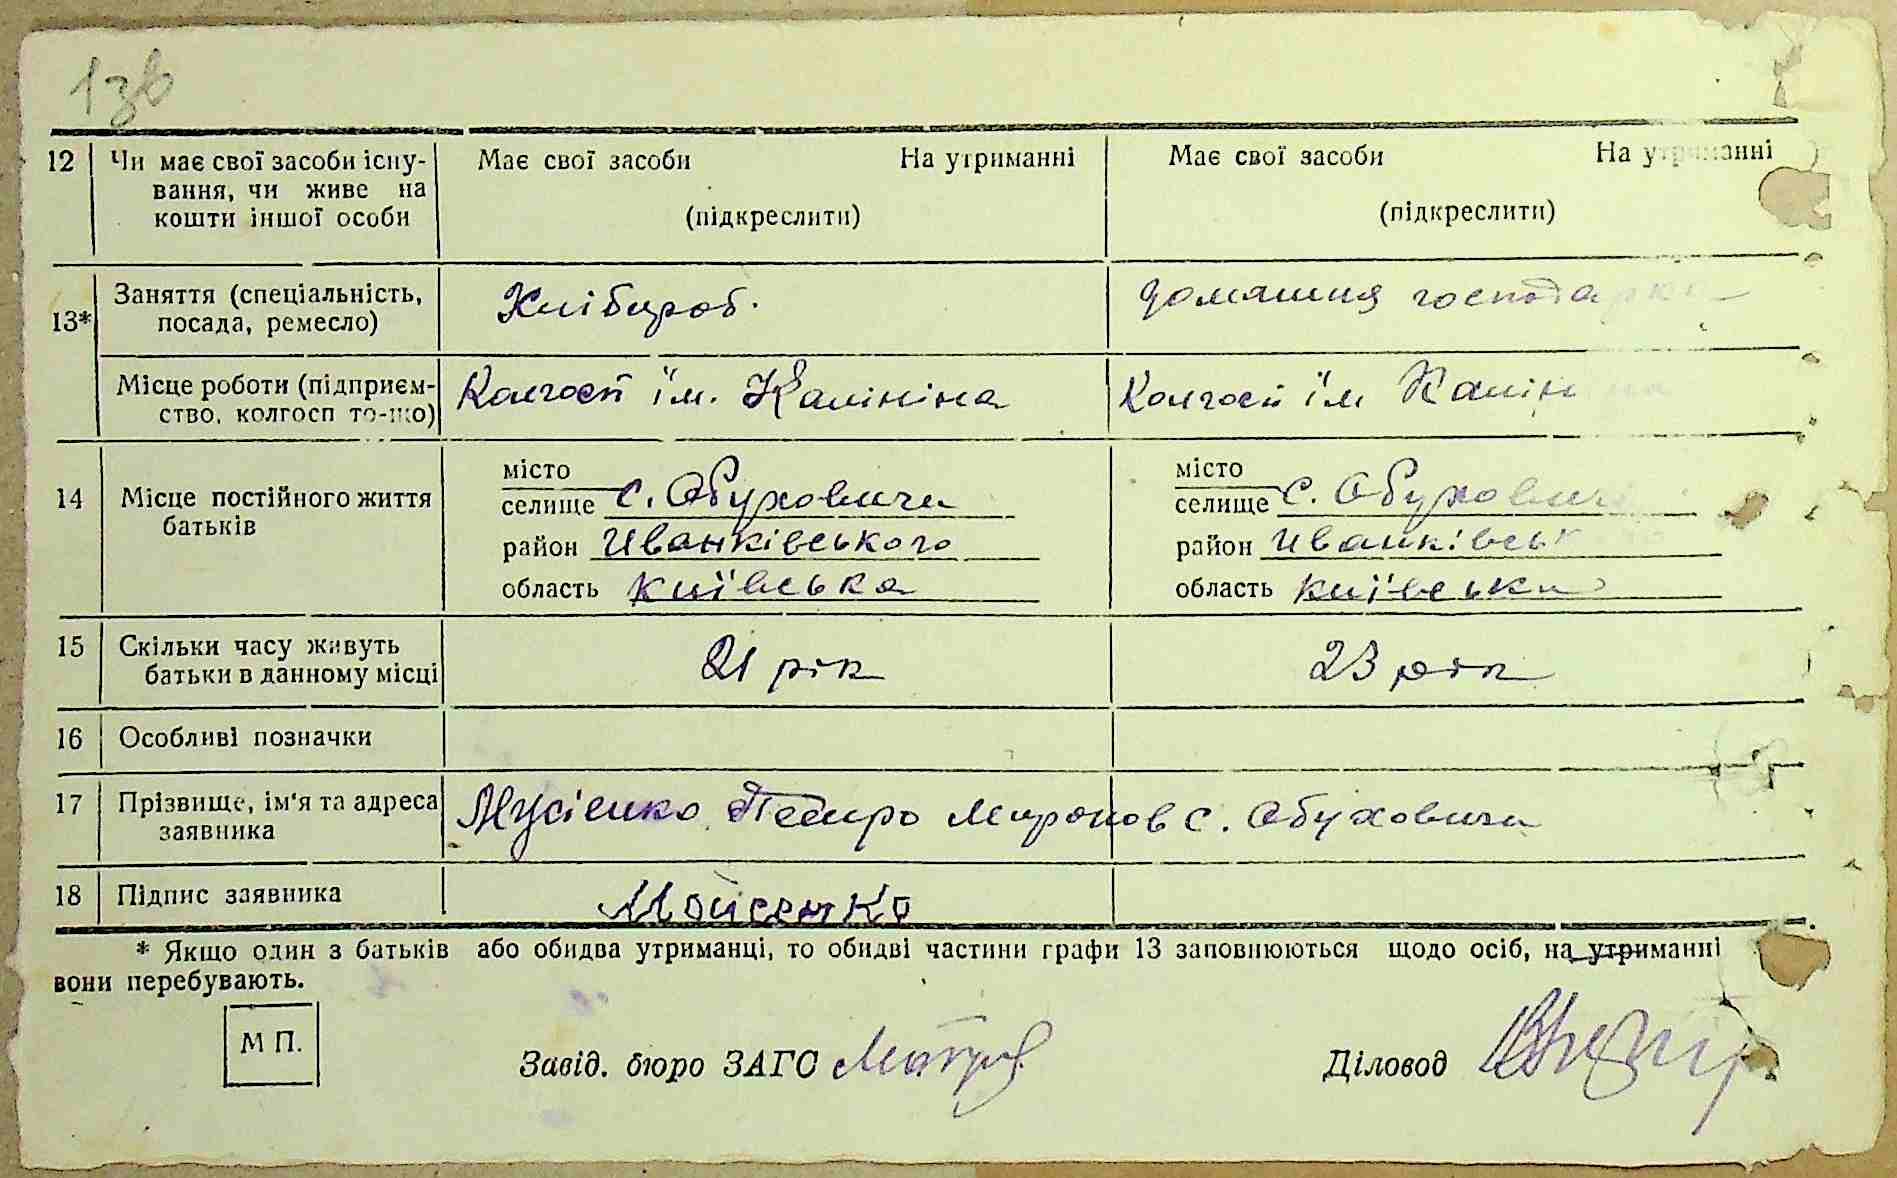 13б
12 Чи має свої засоби існу- Має свої засоби На утриманні Має свої засоби На утриманні
вання, чи живе на
кошти іншої особи (підкреслити) (підкреслити)
13* Заняття (спеціальність, Хлібороб. домашня господарка
посада, ремесло)
Місце роботи (підприєм- Колгосп їм. Калініна Колгосп їм Калініна
ство, колгосп то-що)
14 Місце постійного життя місто місто
батьків селище с. Обуховичи селище с. Обуховичи
район Иванківського район Иванківського
область київська область київська
15 Скільки часу живуть 21 рік 23 рік
батьки в данному місці
16 Особливі позначки
17 Прізвище, ім'я та адреса Мусієнко Петро Миронов с. Обуховичи
заявника
18 Підпис заявника Мойсенко
* Якщо один з батьків або обидва утриманці, то обидві частини графи 13 заповнюються щодо осіб, на утриманні
вони перебувають.
М П.
Завід. бюро ЗАГС Діловод